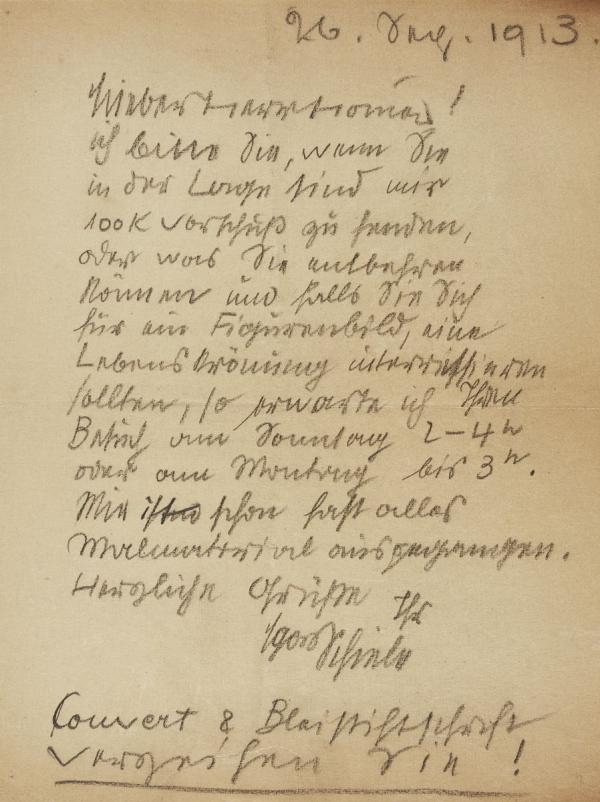 26. Sep. 1913.
Lieber Herr Roman!
ich bitte Sie, wenn Sie
in der Lage sind mir
100 K Vorschuß zu senden,
oder was Sie entbehren
können und falls Sie Sich
für ein Figurenbild, eine
Lebenskrönung interressieren
sollten, so erwarte ich Ihren
Besuch am Sonntag 2–4 h
oder am Montag bis 3 h.
Mir ist schon fast alles
Malmaterial ausgegangen.
Herzliche Grüße Ihr
Egon Schiele
Couvert & Bleistiftschrift
verzeihen Sie!